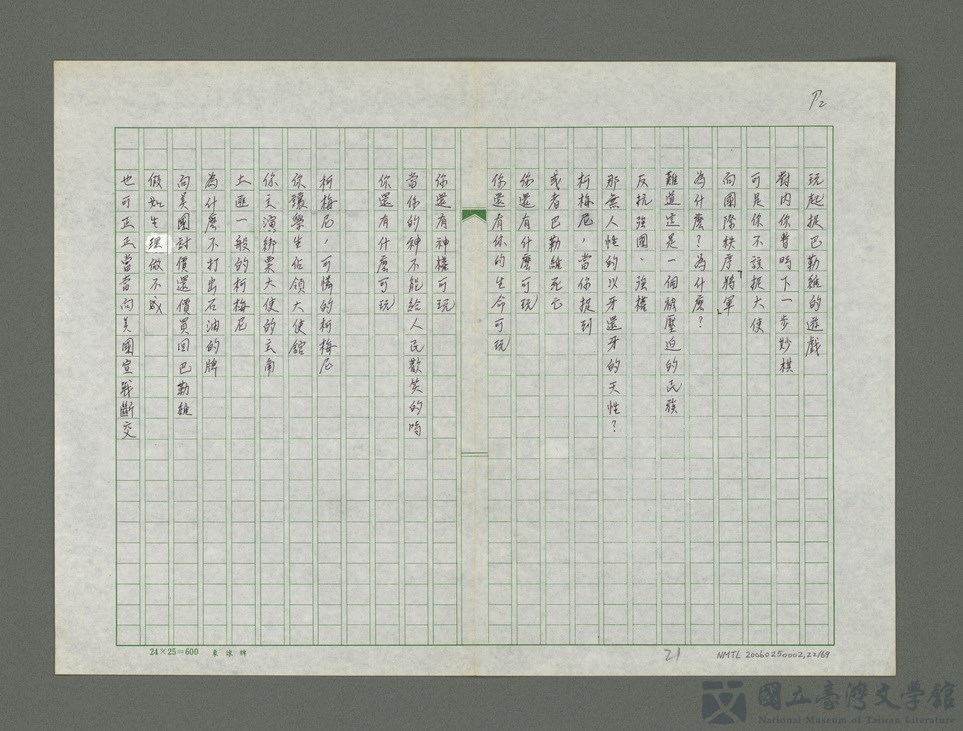 P2
玩起捉巴勒維的遊戲
對內你暫時下一步妙棋
可是你不該捉大使
向國際秩序將軍
為什麼？為什麼？
難道這是一個被壓迫的民族
反抗強國、強權
那無人性的以牙還牙的天性？
柯梅尼，當你捉到
或者巴勒維死亡
你還有什麼可玩
你還有你的生命可玩
你還有神權可玩
當你的神不能給人民歡笑的時
你還有什麼可玩
柯梅尼，可憐的柯梅尼
你讓學生佔領大使館
你去演綁票大使的主角
土匪一般的柯梅尼
為什麼不打出石油的牌
向美國討價還價買回巴勒維
假如生理做不成
也可正正當當向美國宣戰斷交
24×25=600
21
NMTL 20060250002,22/69
國立臺灣文學館
National Museum of Taiwan Literature